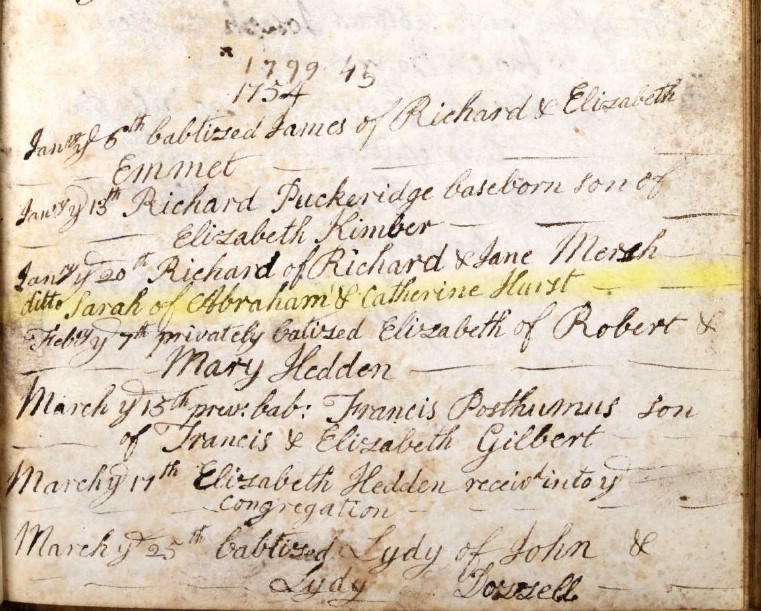 1799 45
1754
Janry ye 6th babtized James of Richard & Elizabeth
Emmet
Janry ye 13th Richard Puckeridge baseborn son of
Elizabeth Kimber
Janry ye 20th Richard of Richard & Jane Mersh
ditto Sarah of Abraham & Catherine Hurst
Febry ye 7th privately batized Elizabeth of Robert &
Mary Hedden
March ye 15th prev: bab: Francis Posthumus son
of Francis & Elizabeth Gilbert
March ye 17th Elizabeth Hedden receivd into ye
congregation
March ye 25th babtized Lydy of John &
Lydy